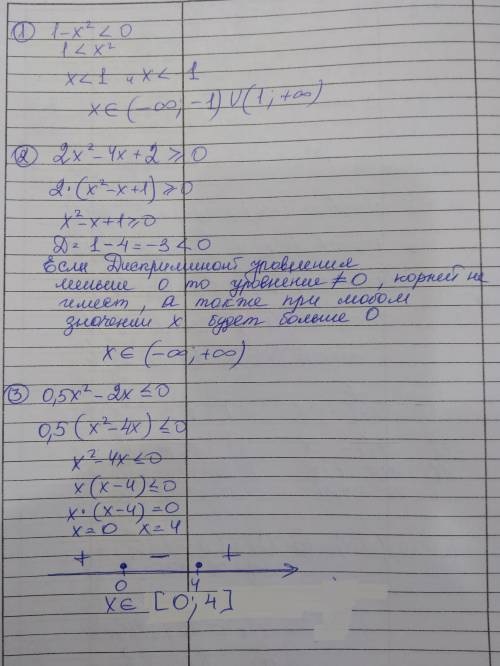 ① 1-x²<0
1<x²
x<1 и x<-1
x∈(-∞;-1)∪(1;+∞)
② 2x²-4x+2≥0
2·(x²-x+1)≥0
x²-x+1≥0
D=1-4=-3<0
Если Дискриминант уровнения
меньше 0 то уровнение ≠0, корней не
имеет, а также при любом
значении x будет больше 0
x∈(-∞;+∞)
③ 0,5x²-2x≤0
0,5(x²-4x)≤0
x²-4x≤0
x(x-4)≤0
x·(x-4)=0
x=0 x=4
+ - +
0 4
x∈ [0;4]